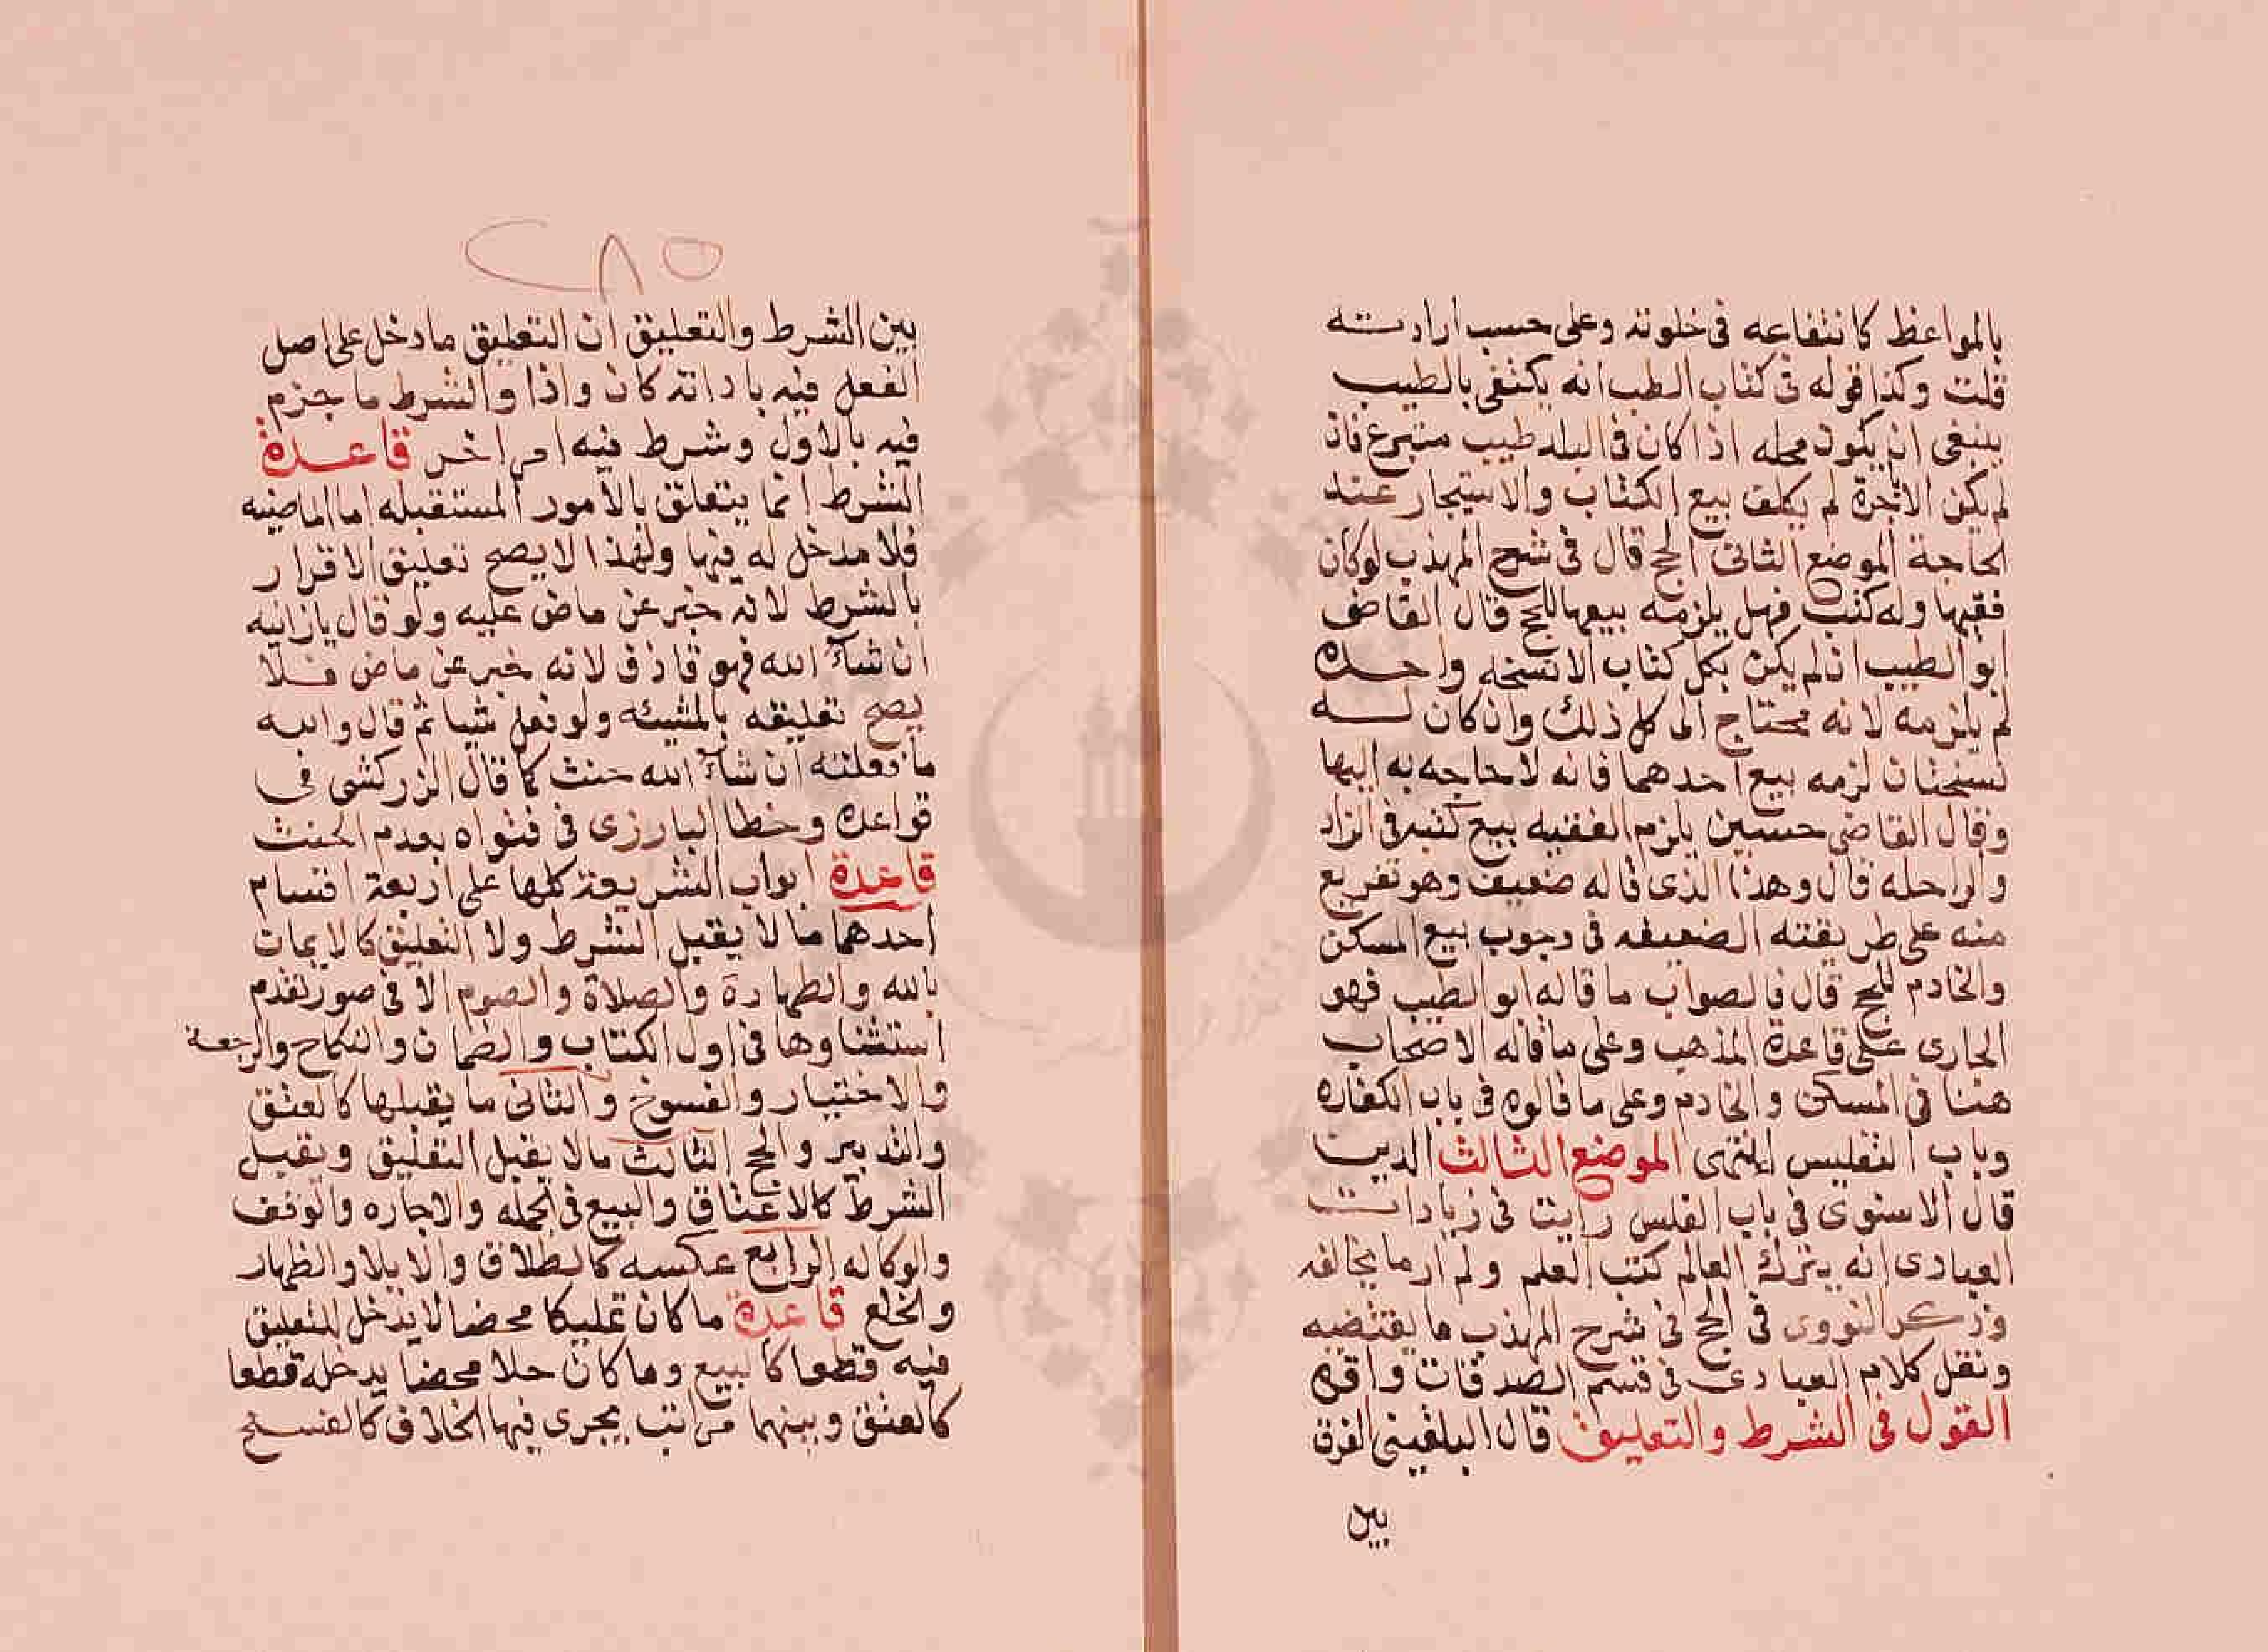 بالمواعظ كانتفاعه في خلوته وعلى حسب ارادته
قلت وكذا قوله في كتاب الطب انه يكتفى بالطبيب
ينبغى ان يكون محله اذا كان في البلد طبيب متبرع فان
لم يكن الا باجرة لم يكلف بيع الكتاب والاستيجار عند
الحاجة الموضع الثانى الحج قال في شرح المهذب لو كان
فقيها وله كتب فهل يلزمه بيعها للحج قال القاضى
ابو الطيب ان لم يكن بكل كتاب الا نسخه واحده
لم يلزمه لانه محتاج الى كل ذلك وان كان له
نسختان لزمه بيع احدهما فانه لا حاجه به اليها
وقال القاضى حسين يلزم الفقيه بيع كتبه في الزاد
والراحله قال وهذا الذى قاله ضعيف وهو تفريع
منه على طريقته الضعيفه في وجوب بيع المسكن
والخادم للحج قال فالصواب ما قاله ابو الطيب فهو
الجارى على قاعدة المذهب وعلى ما قاله الاصحاب
هنا في المسكن والخادم وعلى ما قالوه في باب الكفاره
وباب التفليس انتهى الموضع الثالث الدين
قال الاسنوى في باب الفلس رايت في زيادات
العبادى انه يترك العالم كتب العلم ولم ار ما يخالفه
وذكر النووى في الحج في شرح المهذب ما يقتضيه
ونقل كلام العبادى في قسم الصدقات واقره
القول في الشرط والتعليق قال البلقينى الفرق
بين
٢٨٥
بين الشرط والتعليق ان التعليق ما دخل على اصل
الفعل فيه باداته كان واذا والشرط ما جزم
فيه بالاول وشرط فيه امر اخر قاعدة
الشرط انما يتعلق بالامور المستقبله اما الماضيه
فلا مدخل له فيها ولهذا لا يصح تعليق الاقرار
بالشرط لانه خبر عن ماض عليه ولو قال يا زانيه
ان شآ الله فهو قاذف لانه خبر عن ماض فلا
يصح تعليقه بالمشيئه ولو فعل شيا ثم قال والله
ما فعلته ان شآ الله حنث كما قال الزركشى في
قواعده وخطا البارزى في فتواه بعدم الحنث
قاعدة ابواب الشريعة كلها على اربعة اقسام
احدهما ما لا يقبل الشرط ولا التعليق كالايمان
بالله والطهارة والصلاة والصوم الا في صور تقدم
استثناوها في اول الكتاب والضمان والنكاح والرجعة
والاختيار والفسوخ والثانى ما يقبلها كالعتق
والتدبير والحج الثالث ما لا يقبل التعليق ويقبل
الشرط كالاعتاق والبيع في الجمله والاجاره والوقف
والوكاله الرابع عكسه كالطلاق والايلا والظهار
والخلع قاعدة ما كان تمليكا محضا لا يدخل التعليق
فيه قطعا كالبيع وما كان حلا محضا يدخله قطعا
كالعتق وبينهما مراتب يجرى فيها الخلاف كالفسخ